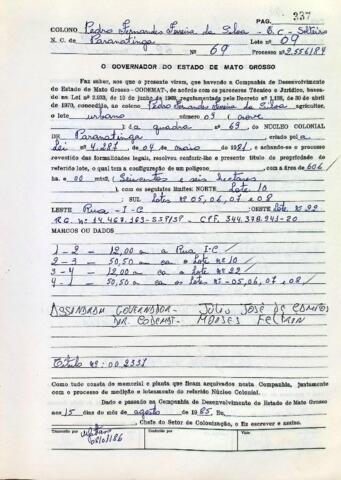 PAG. 237
COLONO Pedro Fernandes Pereira da Silva - E.C - Solteiro
N. C. de Paranatinga Lote nº 09
Nº 69 Processo nº 2.556184
O GOVERNADOR DO ESTADO DE MATO GROSSO
Faz saber, aos que o presente virem, que havendo a Companhia de Desenvolvimento
do Estado de Mato Grosso - CODEMAT-, de acôrdo com os pareceres Técnico e Jurídico, basea-
dos na Lei nº 2.933, de 10 de junho de 1969, regulamentada pelo Decreto nº 1.138, de 30 de abril
de 1970, concedido, ao colono, Pedro Fernandes Pereira da Silva, agricultor,
o lote urbano nº 09 (nove
) (a quadra nº 69, do NÚCLEO COLONIAL
DE Paranatinga criado pela
lei nº 4.287, de 04 de maio de 1981, e achando-se o processo
revestido das formalidades legais, resolveu conferir-lhe o presente título de propriedade do
referido lote, o qual tem a configuração de um polígono com a área de 606/
ha. e 00 mts2, (Seiscentos e seis hectares
), com os seguintes limites: NORTE Lote 10
; SUL Lotes nº 05, 06, 07 e 08
LESTE Rua - I-C ; OESTE Lote nº 22
R.G. nº 14.467.183-SSP/SP - CPF. 344.378.941-20
MARCOS OU DADOS
1 - 2 — 12,00 m a Rua I-C
2 - 3 — 50,50 m ca o Lote nº 10
3 - 4 — 12,00 m ca o Lote nº 22
4 - 1 — 50,50 m ca os Lotes nº - 05, 06, 07 e 08
ASSINARAM GOVERNADOR - JÚLIO JOSÉ DE CAMPOS
DIR. CODEMAT - MOISES FELTRIN
Título nº: 00.2337
Como tudo consta do memorial e planta que ficam arquivados nesta Companhia, juntamente
com o processo de medição e loteamento do referido Núcleo Colonial.
Dado e passado na Companhia de Desenvolvimento do Estado de Mato Grosso
aos 15 dias do mês de agosto de 1985. Eu,
, Chefe do Setor de Colonização, o Fiz escrever e assino.
Transcrito por
Conferido por
Visto
08/01/86